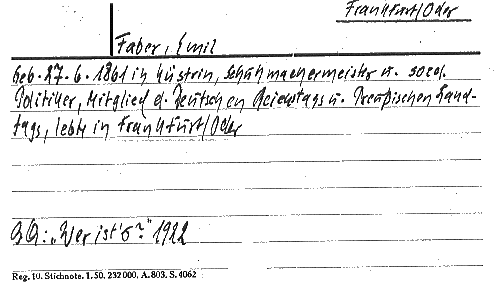 Frankfurt/Oder
Faber, Emil
Geb. 27. 6. 1861 in Küstrin, Schuhmachermeister u. social.
Politiker, Mitglied d. Deutschen Reichstags u. Preußischen Land-
tags, lebte in Frankfurt/Oder
QQ: „Wer ist's?" 1922
Reg. 10. Stichnote. 1. 50. 232 000. A. 803. S. 4062